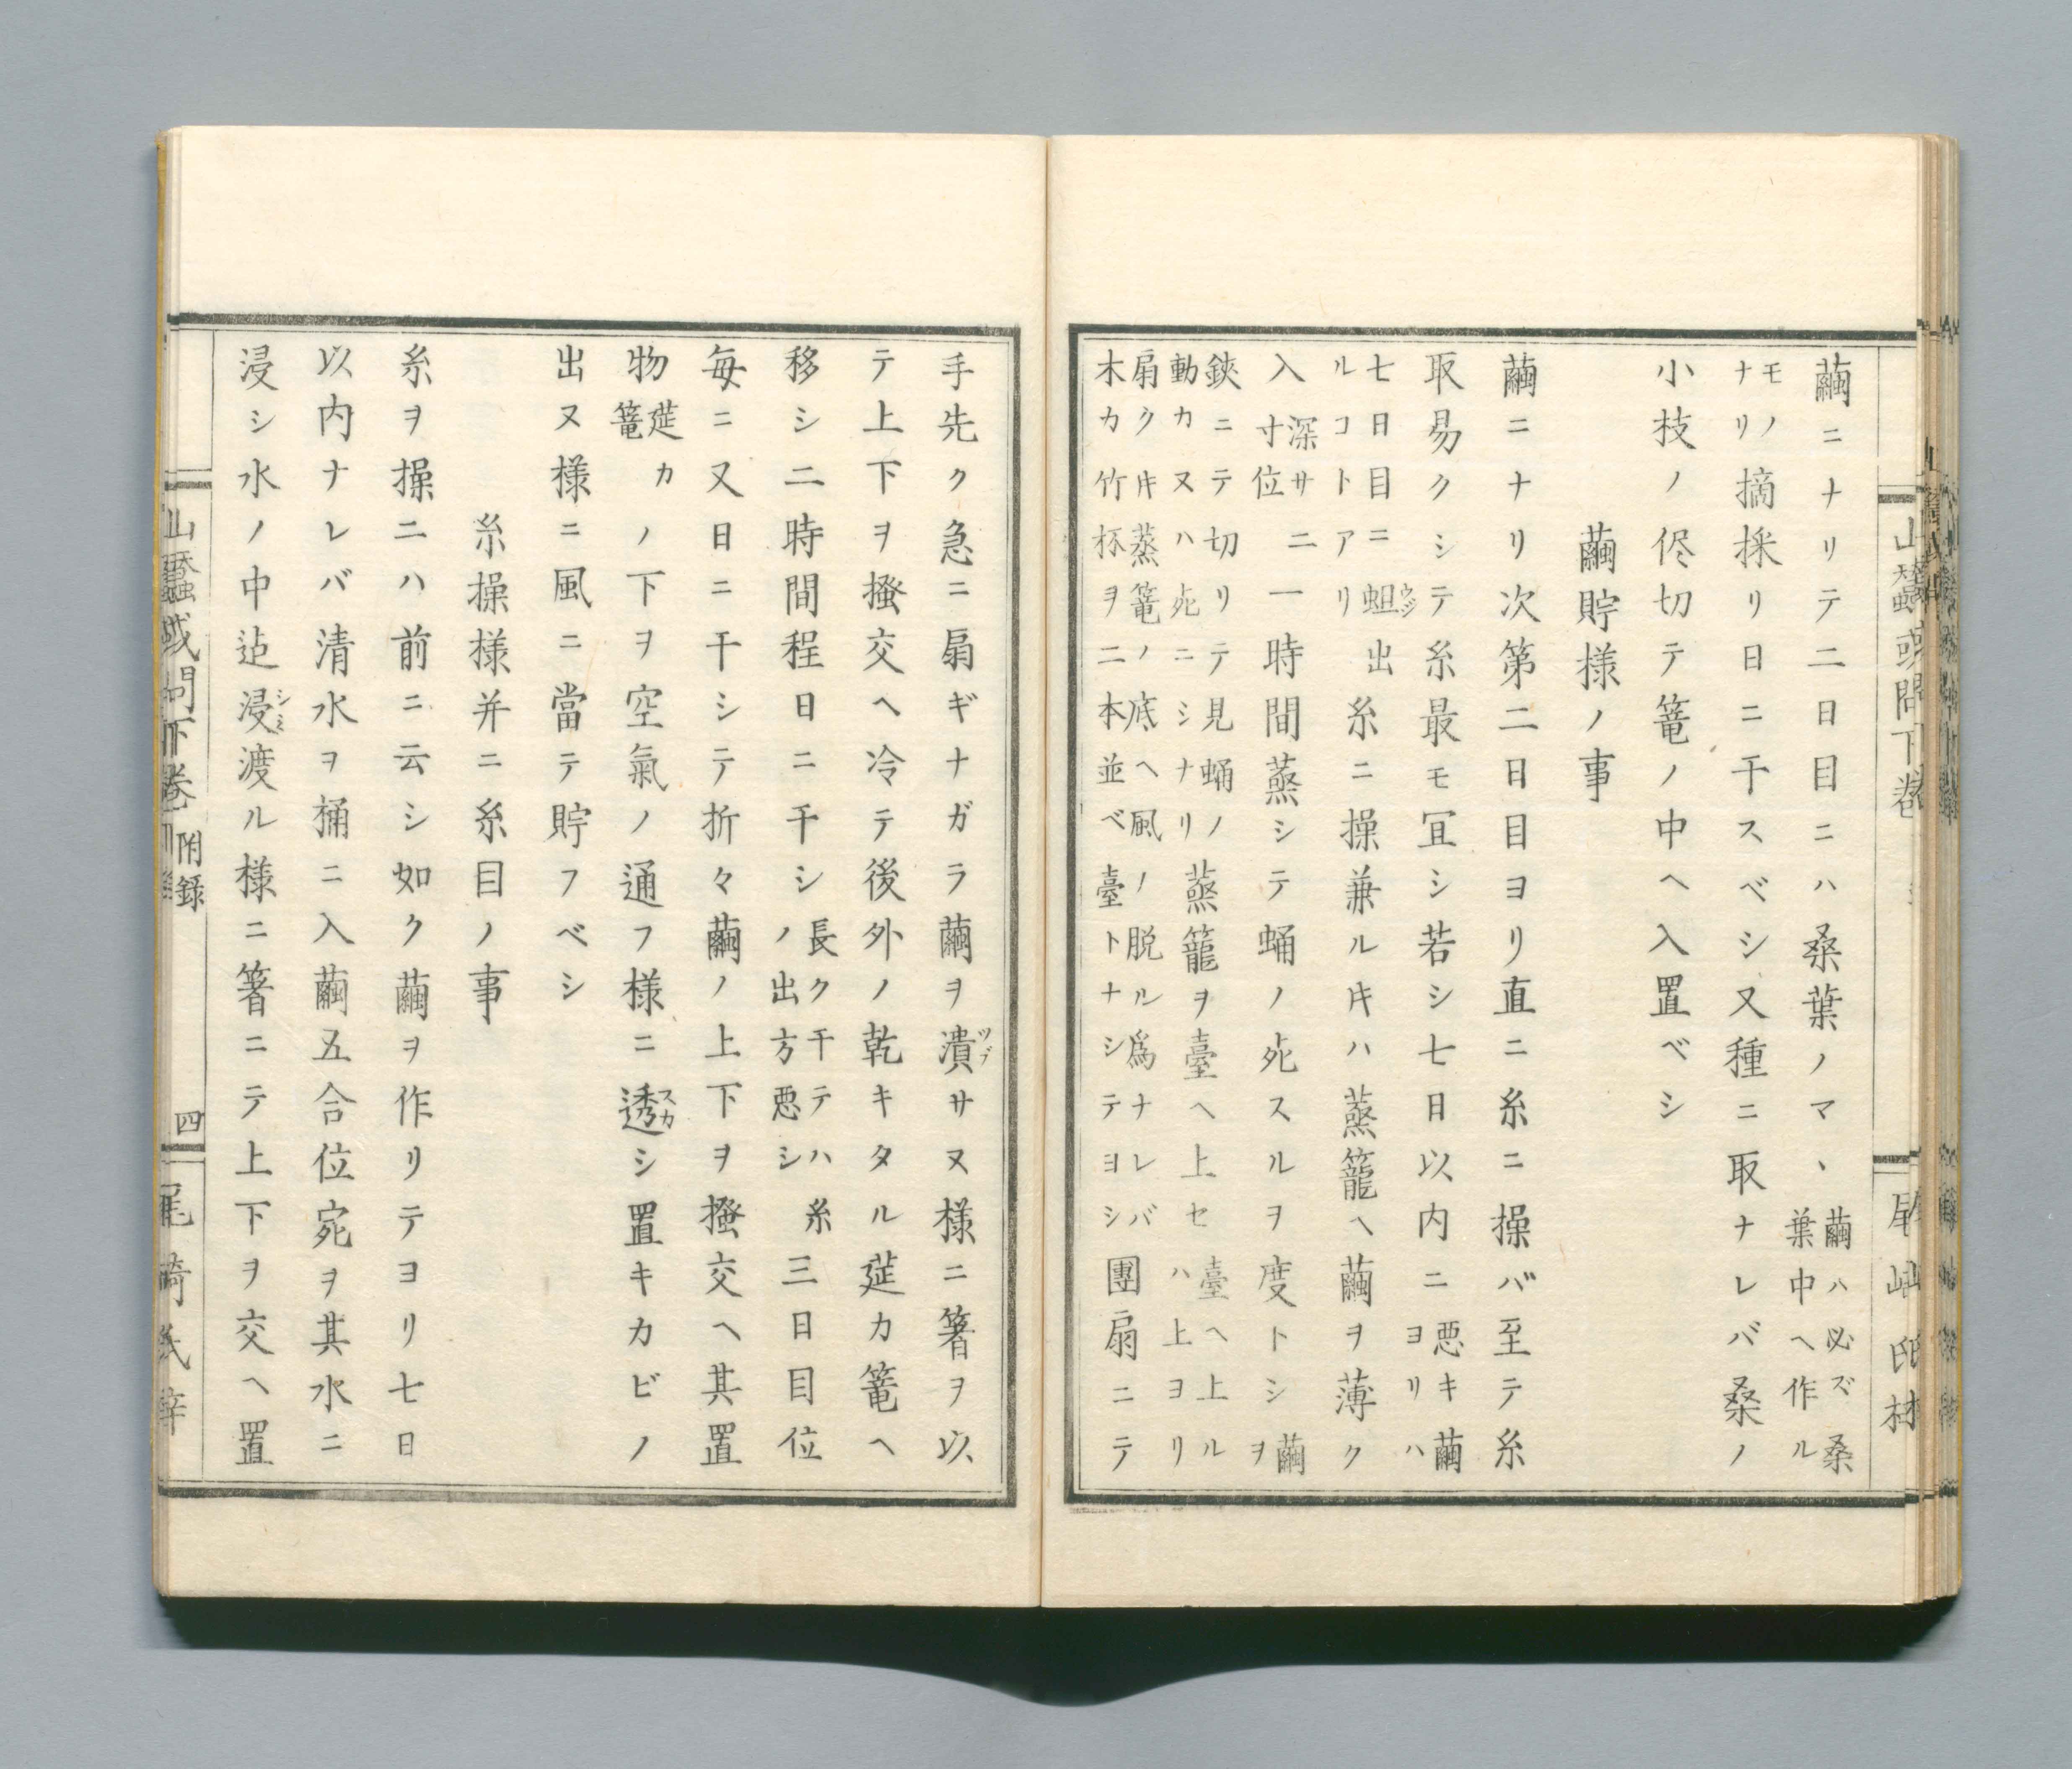 山蠶或問下巻
尾崎氏梓
繭ニナリテ二日目ニハ桑葉ノマヽ
繭ハ必ズ桑
葉中ヘ作ル
モノ
ナリ
摘採リ日ニ干スベシ又種ニ取ナレバ桑ノ
小枝ノ侭切テ篭ノ中ヘ入置ベシ
繭貯様ノ事
繭ニナリ次第二日目ヨリ直ニ糸ニ操バ至テ糸
取易クシテ糸最モ冝シ若シ七日以内ニ
悪キ繭
ヨリハ
七日目ニ蛆ウジ出
ルコトアリ
糸ニ操兼ル𪜈ハ蒸籠ヘ繭ヲ薄ク
入
深サ二
寸位
一時間蒸シテ蛹ノ死スルヲ度トシ
繭
ヲ
鋏ニテ切リテ見蛹ノ
動カヌハ死ニシナリ
蒸籠ヲ臺ヘ上セ
臺ヘ上ル
ハ上ヨリ
扇ク𪜈蒸篭ノ底ヘ風ノ脱ル爲ナレバ
木カ竹杯ヲ二本並ベ臺トナシテヨシ
團扇ニテ
手先ク急ニ扇ギナガラ繭ヲ潰ツブサヌ様ニ箸ヲ以
テ上下ヲ搔交ヘ冷テ後外ノ乾キタル莚カ篭ヘ
移シ二時間程日ニ干シ
長ク干テハ糸
ノ出方悪シ
三日目位
毎ニ又日ニ干シテ折々繭ノ上下ヲ搔交ヘ其置
物
莚カ
篭
ノ下ヲ空氣ノ通フ様ニ透スカシ置キカビノ
出ヌ様ニ風ニ當テ貯フベシ
糸操様并ニ糸目ノ事
糸ヲ操ニハ前ニ云シ如ク繭ヲ作リテヨリ七日
以内ナレバ清水ヲ桶ニ入繭五合位宛ヲ其水ニ
浸シ水ノ中迠浸シミ渡ル様ニ箸ニテ上下ヲ交ヘ置
山蠶或問下巻
附錄
四
尾崎氏梓